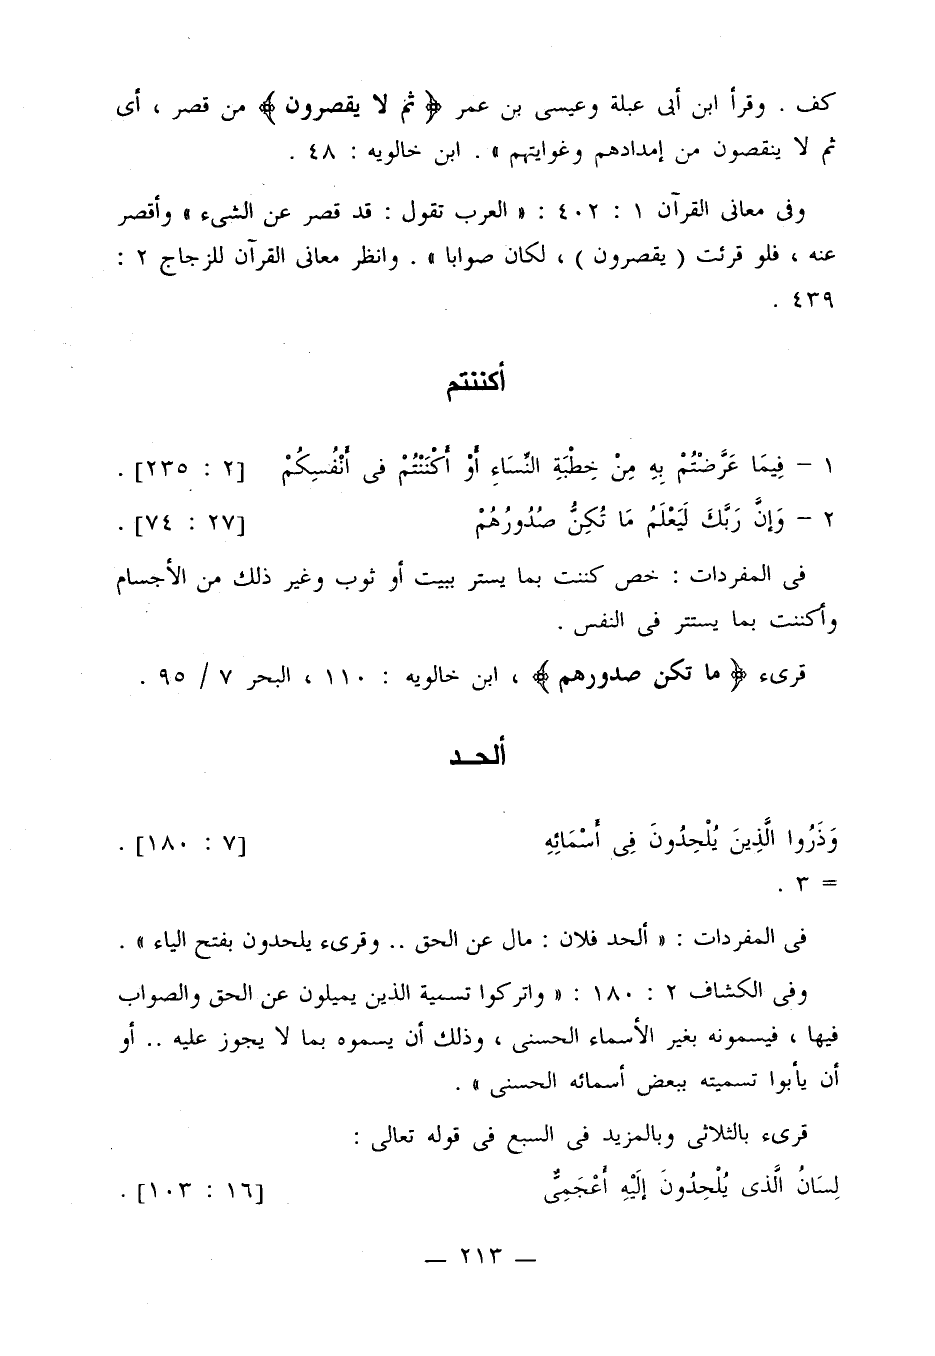 كف . وقرأ ابن أبى عبلة وعيسى بن عمر ﴿ ثم لا يقصرون ﴾ من قصر ، أى
ثم لا ينقصون من إمدادهم وغوايتهم » . ابن خالويه : ٤٨ .
وفى معانى القرآن ١ : ٤٠٢ : « العرب تقول : قد قصر عن الشىء » وأقصر
عنه ، فلو قرئت ( يقصرون ) ، لكان صوابا » . وانظر معانى القرآن للزجاج ٢ :
٤٣٩ .
أكننتم
١ – فِيمَا عَرَّضْتُمْ بِهِ مِنْ خِطْبَةِ النِّسَاءِ أَوْ أَكْنَنْتُمْ فى أَنْفُسِكُمْ [٢ : ٢٣٥] .
٢ – وَإِنَّ رَبَّكَ لَيَعْلَمُ مَا تُكِنُّ صُدُورُهُمْ [٢٧ : ٧٤] .
فى المفردات : خص كننت بما يستر ببيت أو ثوب وغير ذلك من الأجسام
وأكننت بما يستتر فى النفس .
قرىء ﴿ ما تكن صدورهم ﴾ ، ابن خالويه : ١١٠ ، البحر ٧ / ٩٥ .
ألحد
وَذَرُوا الَّذِينَ يُلْحِدُونَ فِى أَسْمَائِهِ [٧ : ١٨٠] .
= ٣ .
فى المفردات : « ألحد فلان : مال عن الحق .. وقرىء يلحدون بفتح الياء » .
وفى الكشاف ٢ : ١٨٠ : « واتركوا تسمية الذين يميلون عن الحق والصواب
فيها ، فيسمونه بغير الأسماء الحسنى ، وذلك أن يسموه بما لا يجوز عليه .. أو
أن يأبوا تسميته ببعض أسمائه الحسنى » .
قرىء بالثلاثى وبالمزيد فى السبع فى قوله تعالى :
لِسَانُ الَّذى يُلْحِدُونَ إِلَيْهِ أَعْجَمِىٌّ [١٦ : ١٠٣] .
— ٢١٣ —